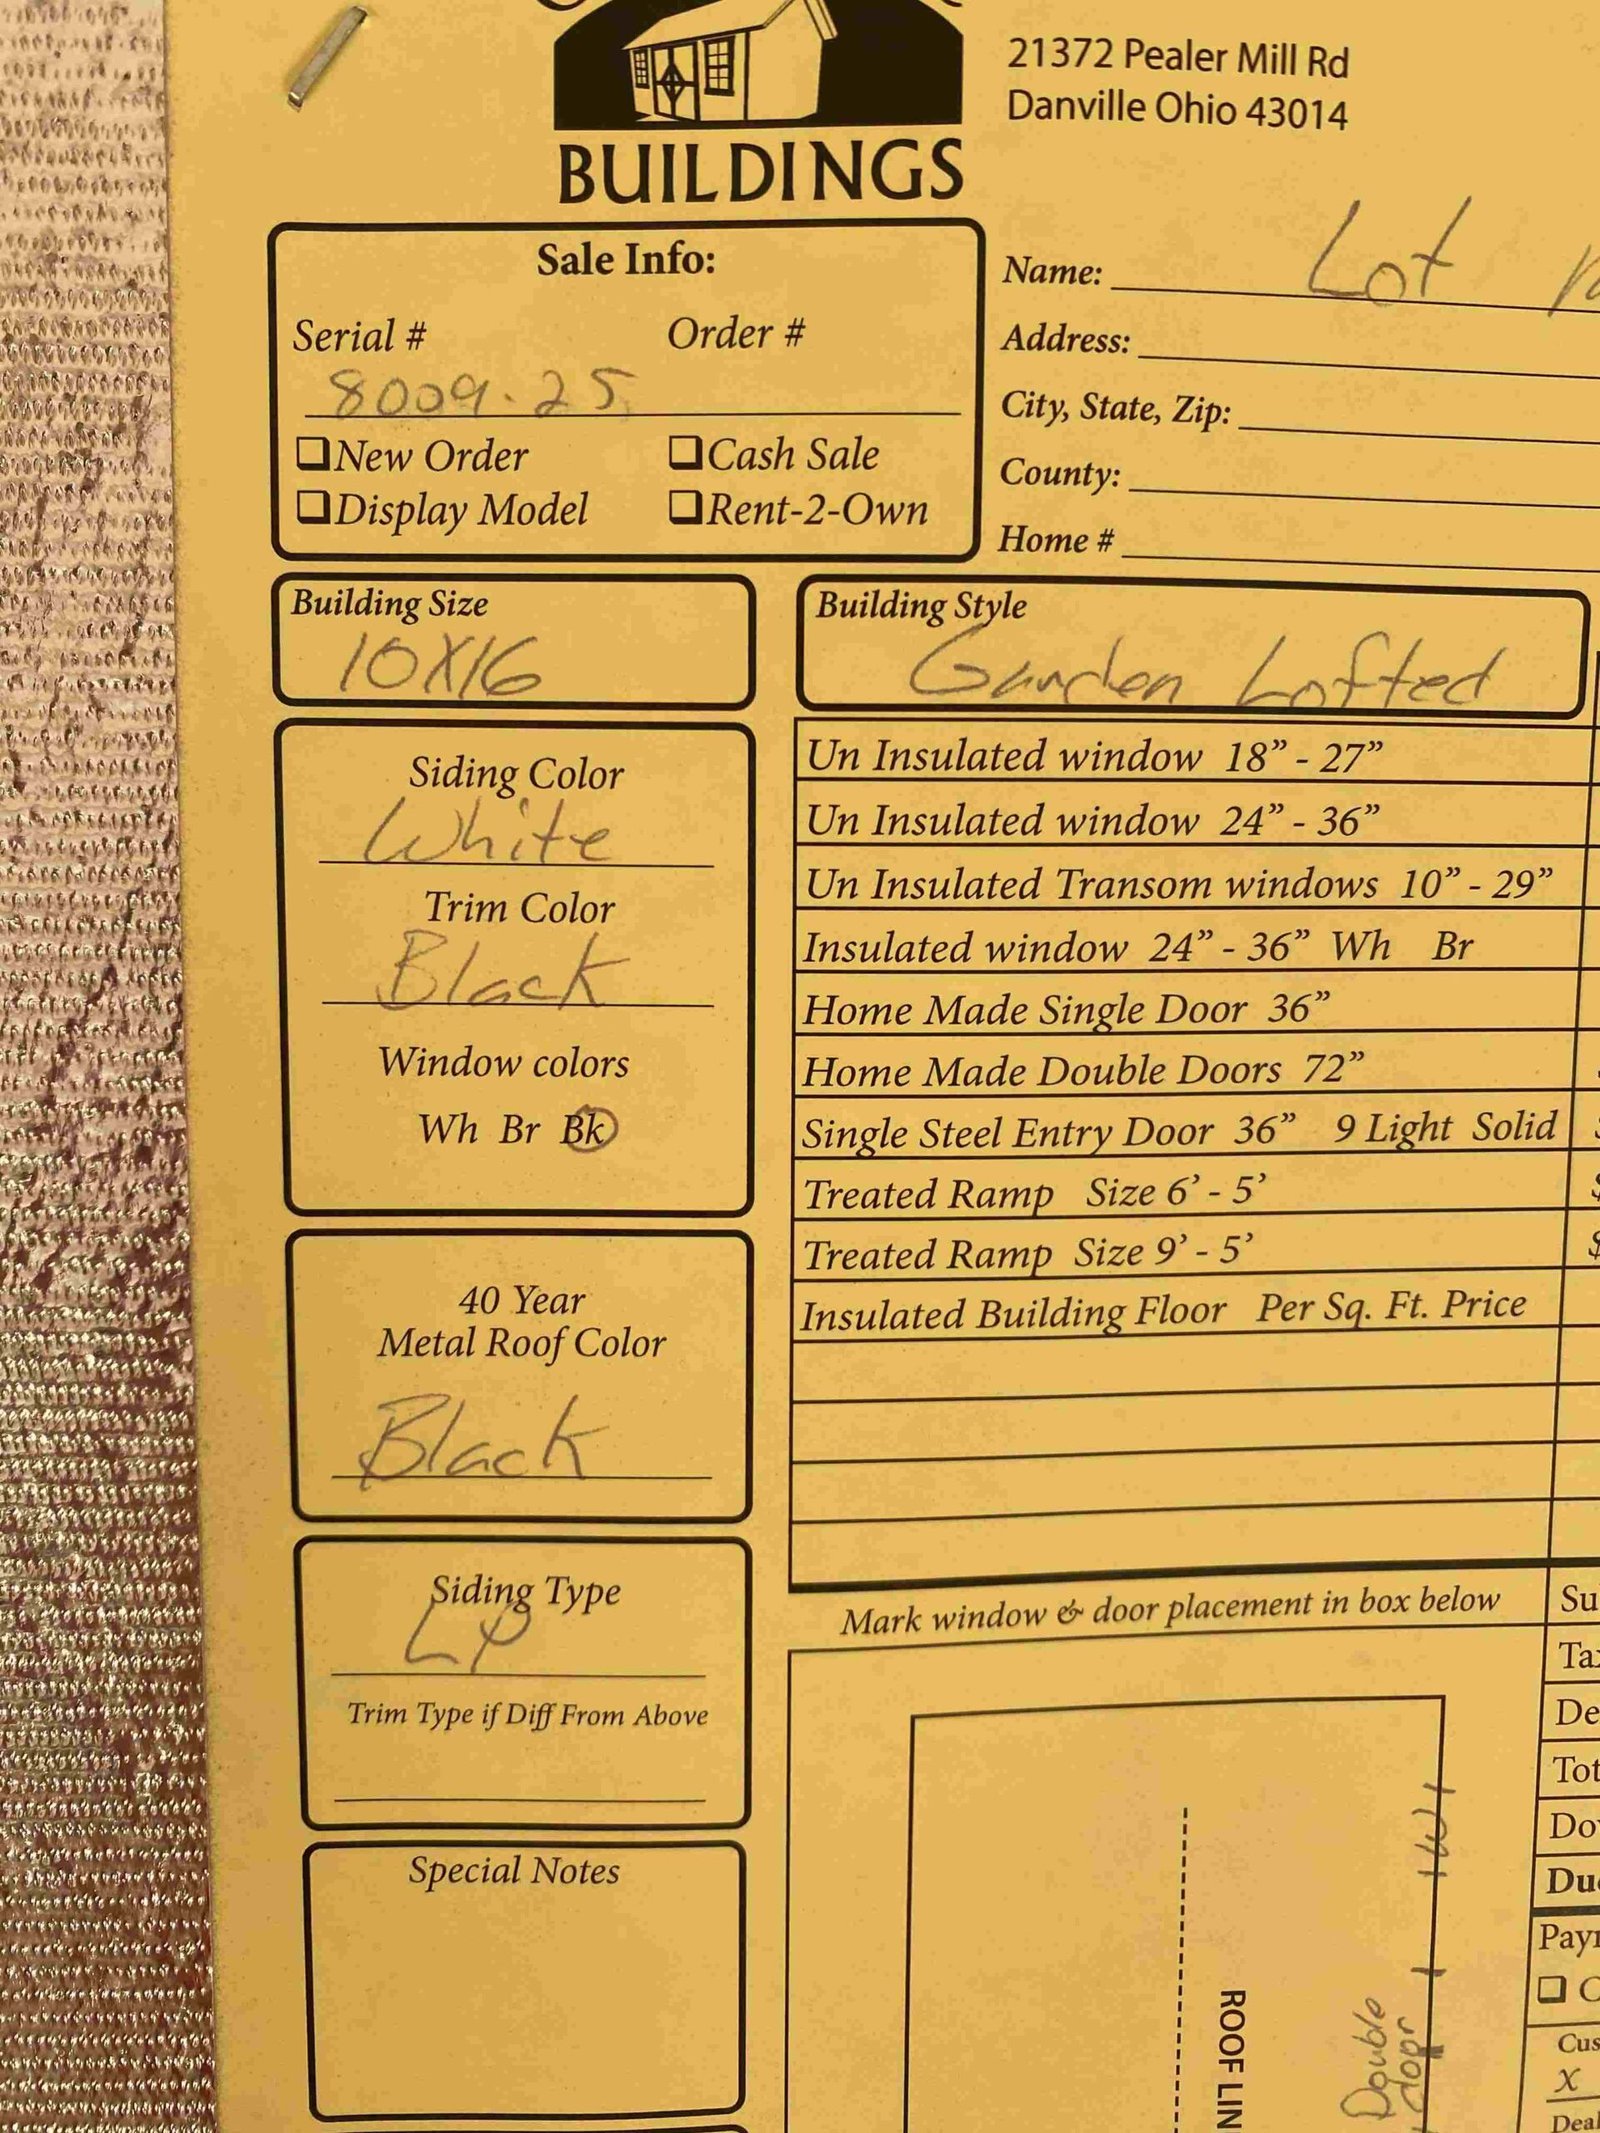 BUILDINGS
21372 Pealer Mill Rd
Danville Ohio 43014
Sale Info:
Serial # Order #
8009.25
❑New Order ❑Cash Sale
❑Display Model ❑Rent-2-Own
Name: Lot
Address:
City, State, Zip:
County:
Home #
Building Size
10X16
Building Style
Garden Lofted
Siding Color
White
Trim Color
Black
Window colors
Wh Br Bk
40 Year
Metal Roof Color
Black
Siding Type
LP
Trim Type if Diff From Above
Special Notes
Un Insulated window 18” - 27”
Un Insulated window 24” - 36”
Un Insulated Transom windows 10” - 29”
Insulated window 24” - 36” Wh Br
Home Made Single Door 36”
Home Made Double Doors 72”
Single Steel Entry Door 36” 9 Light Solid
Treated Ramp Size 6’ - 5’ $
Treated Ramp Size 9’ - 5’ $
Insulated Building Floor Per Sq. Ft. Price
Mark window & door placement in box below
ROOF LIN
W
Double
door
Su
Tax
De
Tot
Do
Due
Payn
❑ C
Cus
X
Deal